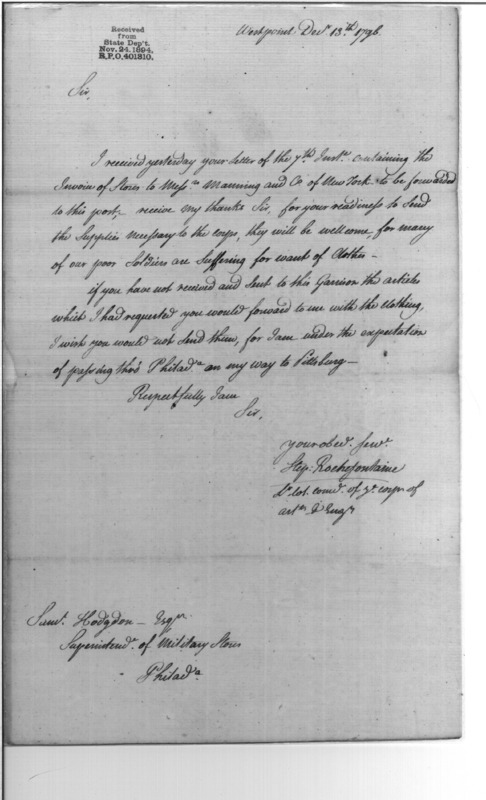 Received
from
State Dep't.
Nov. 24. 1894.
R.P.O. 401310.
Westpoint. Decr 13.th 1796.
Sir,
I received yesterday your Letter of the 7.th Instn. containing the
Invoice of Stores to Messrs Manning and Co of New York to be forwarded
to this post, receive my thanks Sir, for your readiness to Send
the Supplies necessary to the corps, they will be wellcome, for many
of our poor Soldiers are Suffering for want of Clothes —
if you have not received and Sent to this Garrison the articles
which I had requested you would forward to me with the Clothing,
I wish you would not Send them, for I am under the expectation
of passing thro' Philada on my way to Pittsburg —
Respectfully I am
Sir,
your obed. Serv.
Step: Rochefontaine
Lt. Col. comd. of corps of
art. & Engrs
Saml. Hodgdon — Esqr.
Superintendt. of Military Stores
Philada.